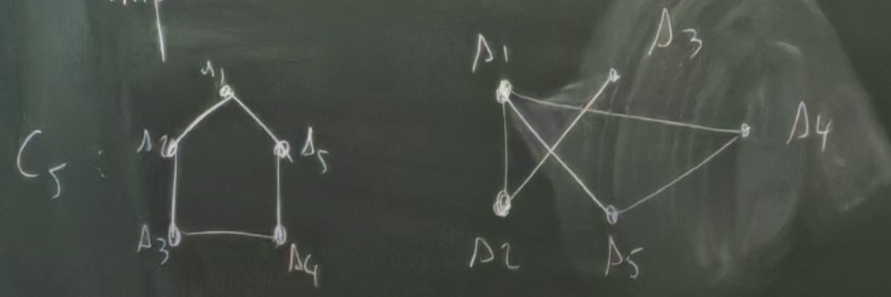 C5 :
s1
s2
s5
s3
s4
s1
s3
s4
s2
s5